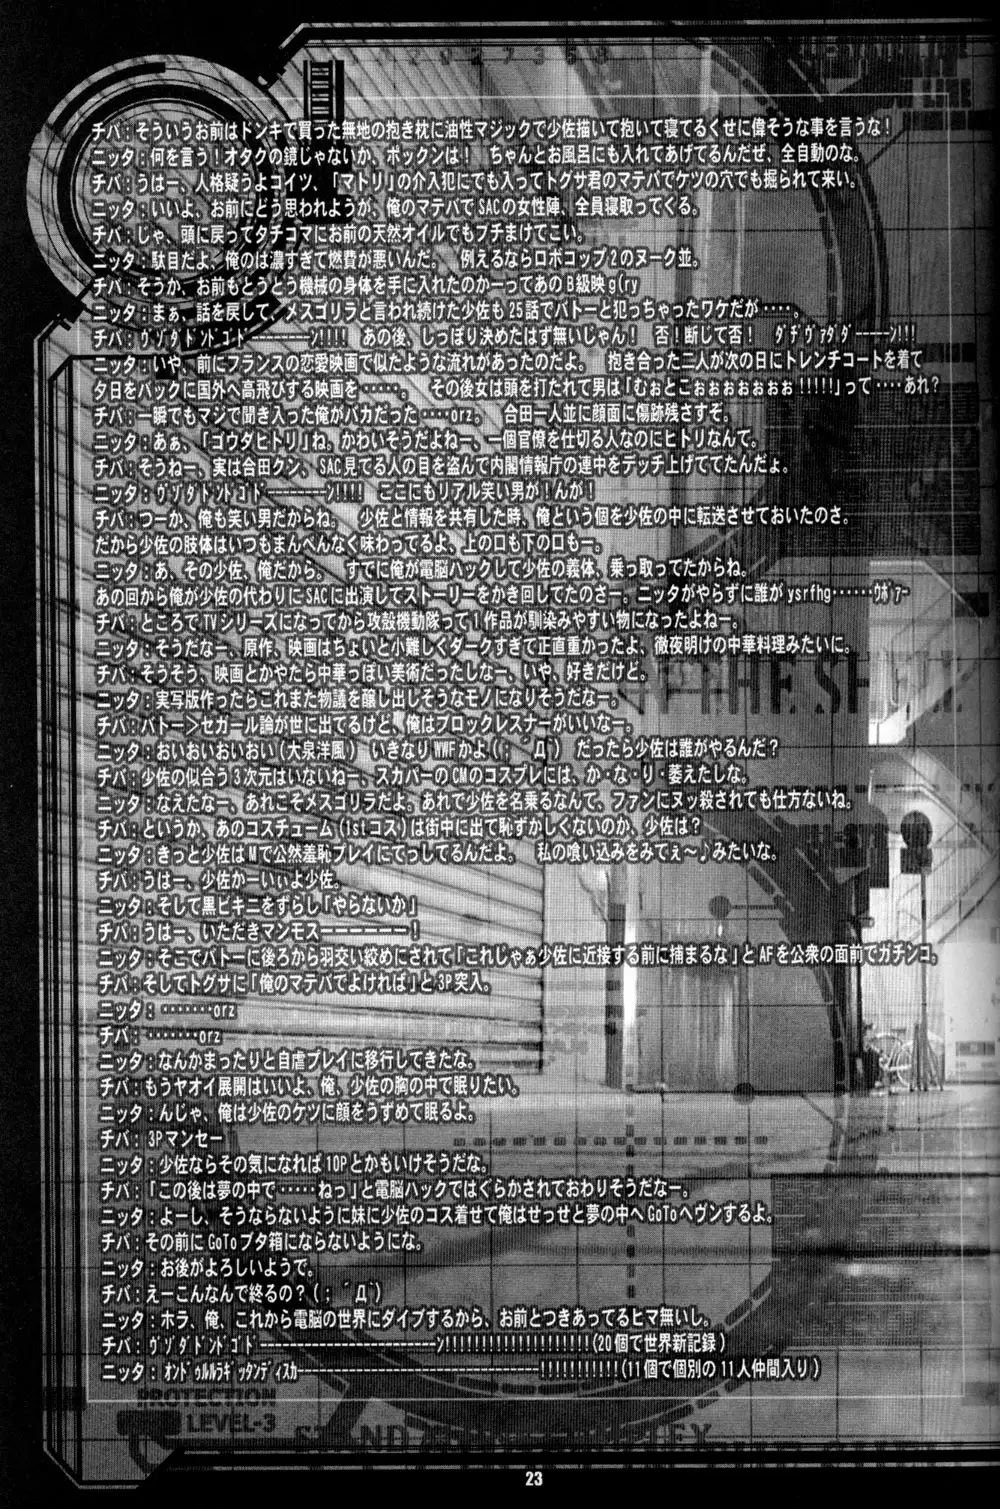 チバ：そういうお前はドンキで買った無地の抱き枕に油性マジックで少佐描いて抱いて寝てるくせに偉そうな事を言うな！
ニッタ：何を言う！オタクの鏡じゃないか、ボックンは！　ちゃんとお風呂にも入れてあげてるんだぜ、全自動のな。
チバ：うはー、人格疑うよコイツ、「マトリ」の介入犯にでも入ってトグサ君のマテバでケツの穴でも掘られて来い。
ニッタ：いいよ、お前にどう思われようが、俺のマテバでSACの女性陣、全員寝取ってくる。
チバ：じゃ、頭に戻ってタチコマにお前の天然オイルでもブチまけてこい。
ニッタ：駄目だよ、俺のは濃すぎて燃費が悪いんだ。　例えるならロボコップ2のヌーク並。
チバ：そうか、お前もとうとう機械の身体を手に入れたのかーってあのB級映g(ry
ニッタ：まぁ、話を戻して、メスゴリラと言われ続けた少佐も25話でバトーと犯っちゃったワケだが‥‥。
チバ：ｳﾞｿﾞﾀﾞﾄﾝﾄﾞｺﾞﾄﾞーーーーーーｰﾝ!!!!　あの後、しっぽり決めたはず無いじゃん！　否！断じて否！　ﾀﾞﾁﾞｳﾞｧﾀﾞﾀﾞｰーーーﾝ!!!
ニッタ：いや、前にフランスの恋愛映画で似たような流れがあったのだよ。　抱き合った二人が次の日にトレンチコートを着て
夕日をバックに国外へ高飛びする映画を‥‥‥。　その後女は頭を打たれて男は「むぉとこぉぉぉぉぉぉぉ!!!!!」って‥‥あれ？
チバ：一瞬でもマジで聞き入った俺がバカだった‥‥orz。　合田一人並に顔面に傷跡残さすぞ。
ニッタ：あぁ、「ゴウダヒトリ」ね。かわいそうだよねー、一個官僚を仕切る人なのにヒトリなんて。
チバ：そうねー、実は合田クン、SAC見てる人の目を盗んで内閣情報庁の連中をデッチ上げててたんだょ。
ニッタ：ｳﾞｿﾞﾀﾞﾄﾝﾄﾞｺﾞﾄﾞーーーーーーｰﾝ!!!!　ここにもリアル笑い男が！んが！
チバ：つーか、俺も笑い男だからね。　少佐と情報を共有した時、俺という個を少佐の中に転送させておいたのさ。
だから少佐の肢体はいつもまんべんなく味わってるよ、上の口も下の口もー。
ニッタ：あ、その少佐、俺だから。　すでに俺が電脳ハックして少佐の義体、乗っ取ってたからね。
あの回から俺が少佐の代わりにSACに出演してストーリーをかき回してたのさー。ニッタがやらずに誰がysrfhg‥‥‥ｳﾎﾞｧｰ
チバ：ところでTVシリーズになってから攻殻機動隊って1作品が馴染みやすい物になったよねー。
ニッタ：そうだなー、原作、映画はちょいと小難しくダークすぎて正直重かったよ、徹夜明けの中華料理みたいに。
チバ：そうそう、映画とかやたら中華っぽい美術だったしなー、いや、好きだけど。
ニッタ：実写版作ったらこれまた物議を醸し出しそうなモノになりそうだなー。
チバ：バトー＞セガール論が世に出てるけど、俺はブロックレスナーがいいなー。
ニッタ：おいおいおいおい（大泉洋風）　いきなりWWFかよ(；　ﾟДﾟ)　だったら少佐は誰がやるんだ？
チバ：少佐の似合う3次元はいないねー、スカパーのCMのコスプレには、か・な・り・萎えたしな。
ニッタ：なえたなー、あれこそメスゴリラだよ。あれで少佐を名乗るなんて、ファンにヌッ殺されても仕方ないね。
チバ：というか、あのコスチューム(1stコス)は街中に出て恥ずかしくないのか、少佐は？
ニッタ：きっと少佐はMで公然羞恥プレイにてっしてるんだよ。　私の喰い込みをみてぇ～♪みたいな。
チバ：うはー、少佐かーいぃよ少佐。
ニッタ：そして黒ビキニをずらし「やらないか」
チバ：うはー、いただきマンモスーーーーーーー！
ニッタ：そこでバトーに後ろから羽交い絞めにされて「これじゃぁ少佐に近接する前に捕まるな」とAFを公衆の面前でガチンコ。
チバ：そしてトグサに「俺のマテバでよければ」と3P突入。
ニッタ：‥‥‥‥orz
チバ：‥‥‥‥orz
ニッタ：なんかまったりと自虐プレイに移行してきたな。
チバ：もうヤオイ展開はいいよ、俺、少佐の胸の中で眠りたい。
ニッタ：んじゃ、俺は少佐のケツに顔をうずめて眠るよ。
チバ：3Pマンセー
ニッタ：少佐ならその気になれば10Pとかもいけそうだな。
チバ：「この後は夢の中で‥‥‥ねっ」と電脳ハックではぐらかされておわりそうだなー。
ニッタ：よーし、そうならないように妹に少佐のコス着せて俺はせっせと夢の中へGoToヘヴンするよ。
チバ：その前にGoToブタ箱にならないようにな。
ニッタ：お後がよろしいようで。
チバ：えーこんなんで終るの？(；　ﾟДﾟ)
ニッタ：ホラ、俺、これから電脳の世界にダイブするから、お前とつきあってるヒマ無いし。
チバ：ｳﾞｿﾞﾀﾞﾄﾝﾄﾞｺﾞﾄﾞｰーーーーーーーーーーーーーーーーーーーーーーーﾝ!!!!!!!!!!!!!!!!!!!!(20個で世界新記録)
ニッタ：ｵﾝﾄﾞｩﾙﾙﾗｷﾞｯﾀﾝﾃﾞｨｽｶｰーーーーーーーーーーーーーーーーーーーーーーー!!!!!!!!!!!(11個で個別の11人仲間入り)
PROTECTION
LEVEL-3
23